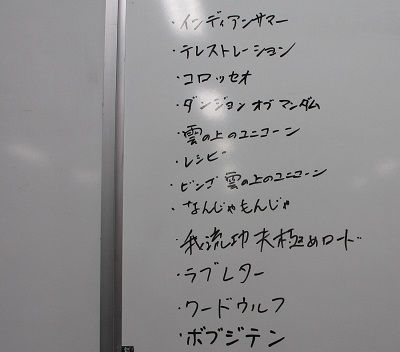 ・インディアンサマー
・テレストレーション
・コロッセオ
・ダンジョンオブマンダム
・雲の上のユニコーン
・レシピ
・ビンゴ 雲の上のユニコーン
・なんじゃもんじゃ
・我流功夫極めロード
・ラブレター
・ワードウルフ
・ボブジテン